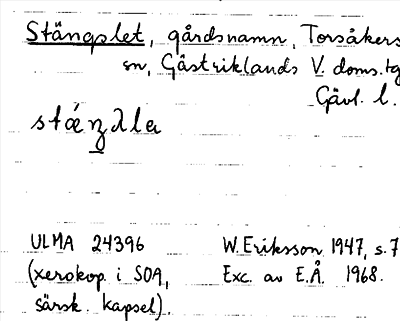 Stängslet, gårdsnamn, Torsåkers
sn, Gästriklands V. doms.tg
Gävl. l.
ULMA 24396
(xerokop. i SOA,
särsk. kapsel).
W. Eriksson 1947, s. 7
Exc. av E.Å. 1968.